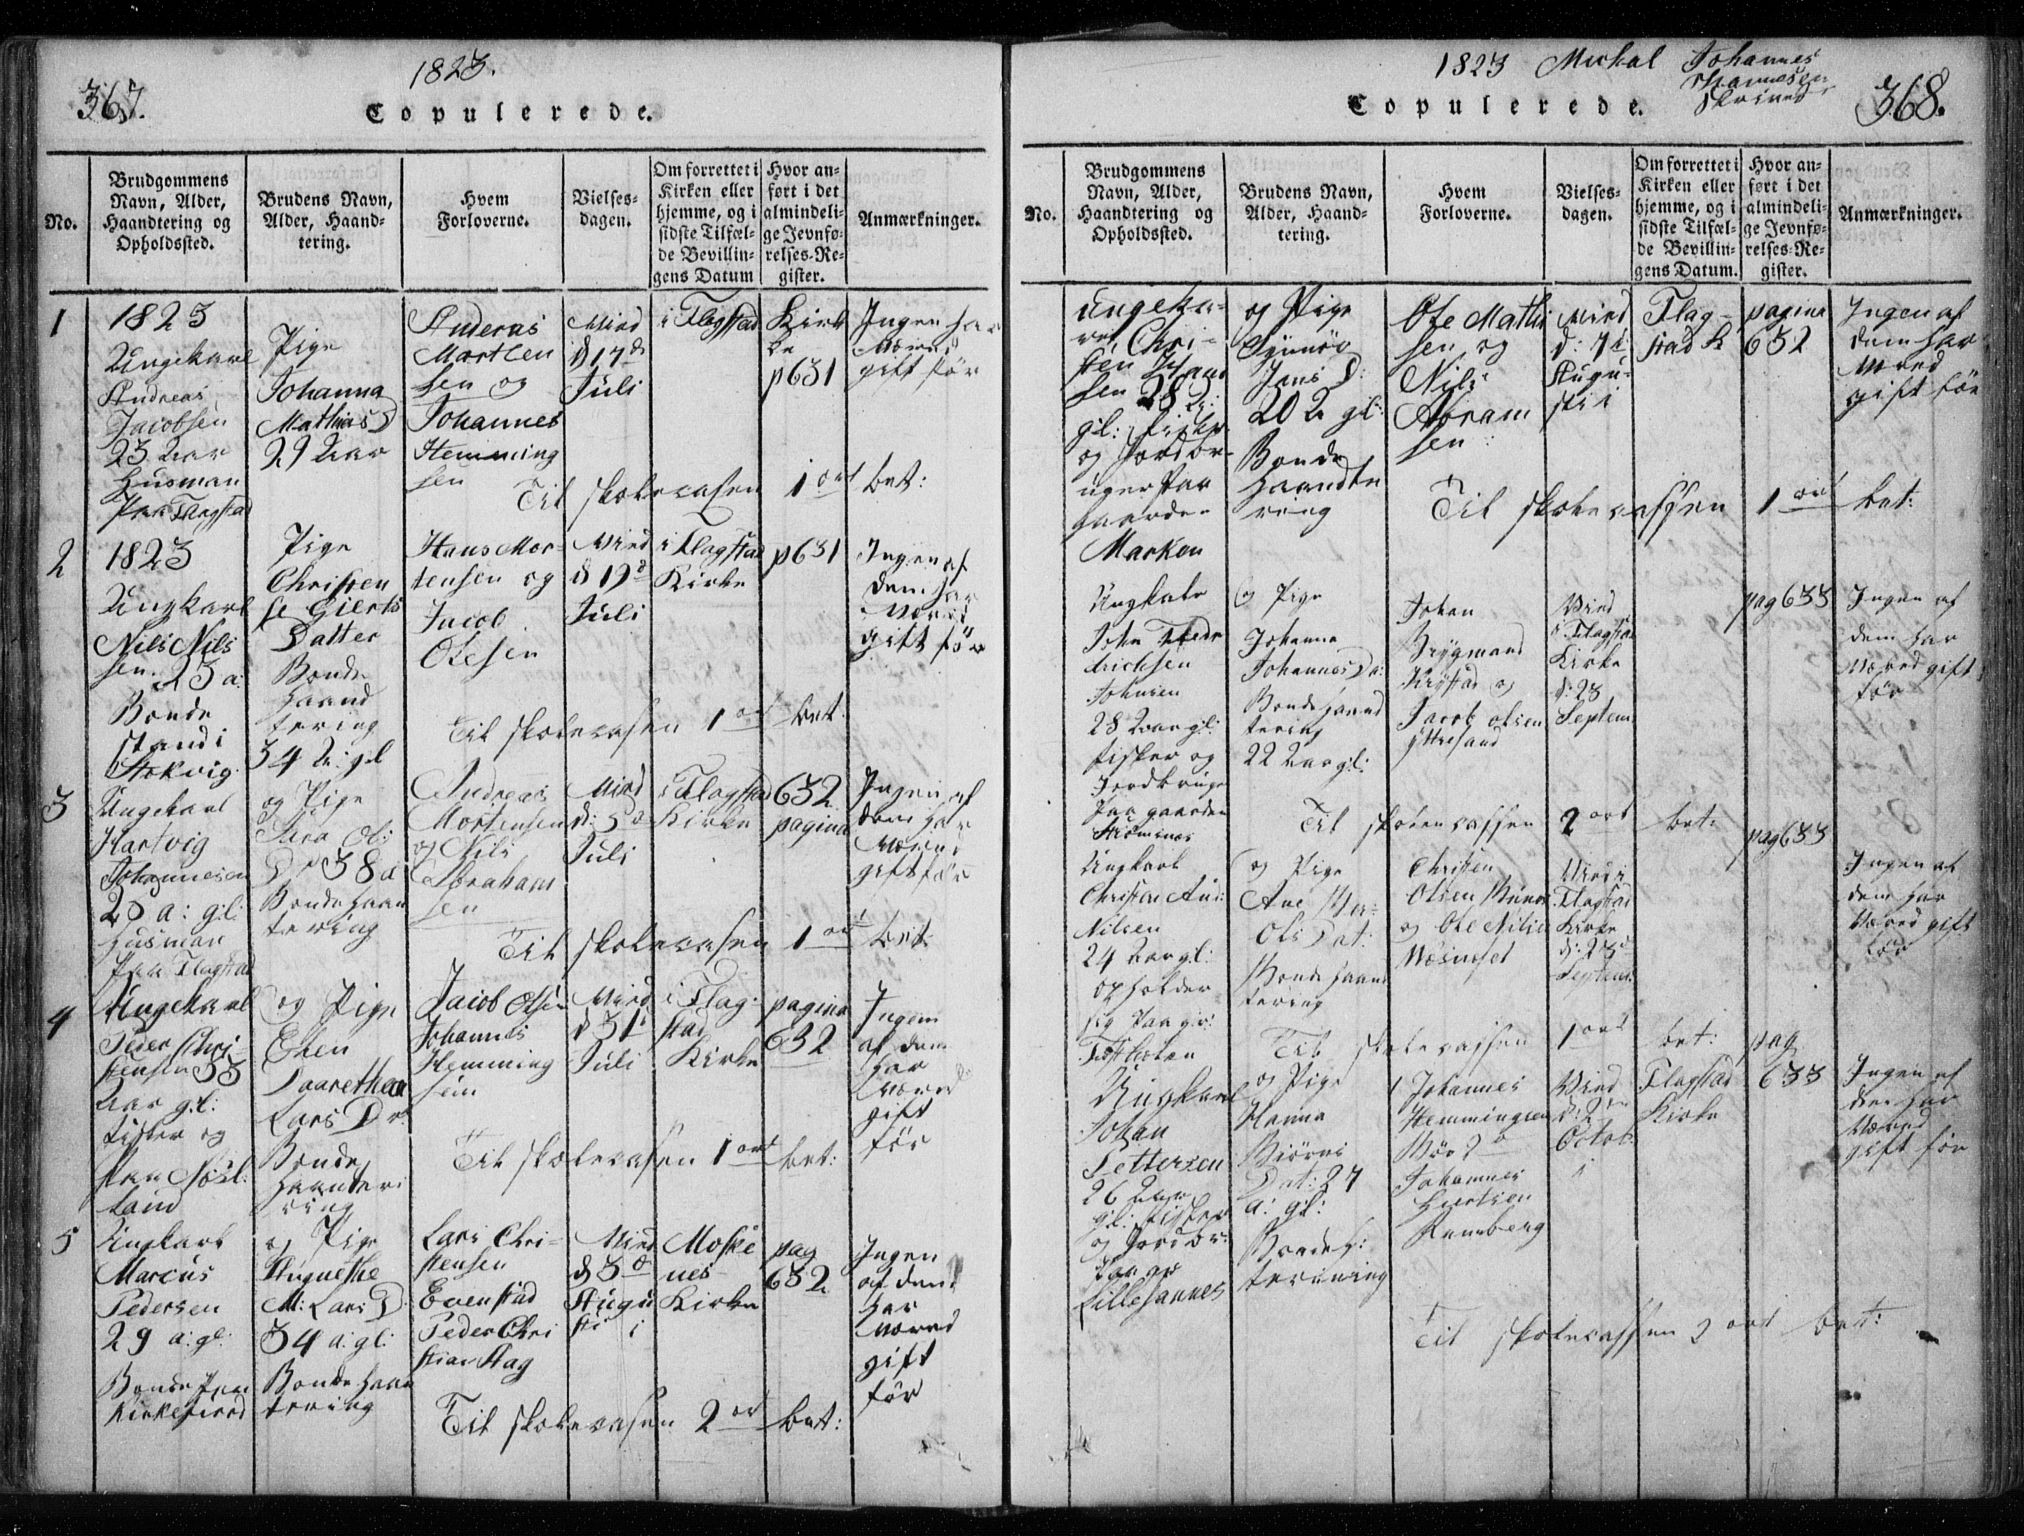 367.
1823.
Copulerede.
No.
Brudgommens
Navn, Alder,
Haandtering og
Opholdssted.
Brudens Navn,
Alder, Haand-
tering.
Hvem
Forloverne.
Vielses-
dagen.
Om forrettet i
Kirken eller
hjemme, og i
sidste Tilfæl-
de Bevillin-
gens Datum
Hvor an-
ført i det
almindeli-
ge Jevnfø-
relses-Re-
gister.
Anmærkninger.
1
1823
Ungekarl
Andreas
Jacobsen
23 Aar
Husman
paa Flagstad
Pige
Johanna
Mathias D
29 Aar
Anderas
Mortten
sen og
Johannes
Hemming
sen
Vied
d 17de
Juli
i Flagstad
Kirk
ke
p631
Ingen har
Været
gift før
Til skolecasen 1 ort bet:
2
1823
Ungkarl
Nils Nils
sen 23 a:
Bonde
stand i
Stokvig
Pige
Christen
se Gierts
Datter
Bonde
haand
tering
34 A: gl
Hans Mor-
tensen og
Jacob
Olesen
Vied
d 19d
Juli
i Flagstad
Kirke
p631
Ingen af
dem har
Været
gift før
Til skolecasen 1 ort bet:
3
Ungekarl
Hartvig
Johannesen
23 a: gl:
Husman
paa Flagstad
og Pige
Sara Ol:
Dr 38 a
Bonde haan
tering
Andreas
Mortensen
og Nils
Abraham
sen
Vied
d: 3d
Juli
i Flagstad
Kirke
632
pagina
Ingen af
dem har
Været
gift før
Til skolecasen 1 ort bet:
4
Ungekarl
Peder Chri
stensen 33
Aar gl:
fisker og
paa Nøsl:
land
og Pige
Elen
Daarethea
Lars Dr:
Bonde
haanteri
ring
Jacob Olsen
Johannes
Hemming
sen
Vied
d 31
Juli
i Flag-
stad
Kirke
pagina
632
Ingen
af dem
har
Været
gift
før
Til skolecasen 1 ort bet:
5
Ungkarl
Marcus
Pedersen
29 a: gl:
Bonde paa
Kirkefiord
og Pige
M: Lars D:
34 a: gl:
Bonde haan
tering
Lars Chri-
stensen
Evenstad
Peder Chri
stian Aag
Vied
d 3d
Augu
sti
Moske
nes
Kirke
pag
632
Ingen
af dem
har
Været
gift
før
Til skolecasen 2 ort bet:
1823 Michal Johannes
368.
Copulerede.
No.
Brudgommens
Navn, Alder,
Haandtering og
Opholdssted.
Brudens Navn,
Alder, Haand-
tering.
Hvem
Forloverne.
Vielses-
dagen.
Om forrettet i
Kirken eller
hjemme, og i
sidste Tilfæl-
de Bevillin-
gens Datum.
Hvor an-
ført i det
almindeli-
ge Jevnfø-
relses-Re-
gister.
Anmærkninger.
Ungeka-
rel Chri-
sten
sen 28 Ar:
gl: fisker
og Jordbr-
uger paa
gaarden
Marken
og Pige
Synnøv
Jens D:
20 A gl:
Bonde
haandte
ring
Ole Mathi
sen og
Nils
Abram
sen
Vied
d: 7d
Augu-
sti
Flag-
stad K
pagina
632
Ingen af
dem har
Været
gift før
Til skolecassen 1 ort bet:
Ungkale
John
Erichsen
Johnsen
28 Aar gl:
fisker og
Jordbruger
paa gaarden
og Pige
Johanna
Johannes Da:
Bonde haand
tering
22 Aar gl:
Johan
Brygmand
Krystad og
Jacob Olsen
Yttresand
Vied
i Flagstad
Kirke
d: 23
Septem
pag 633
Ingen af
dem har
Været gift
før
Til skolencassen 2 ort bet:
Ungkarl
Christen And:
Nilsen
24 Aar gl:
opholder
sig paa
og Pige
Ane
Ols Dat:
Bonde haand
tering
Christen
Olsen
og Ole Nilsen
Vied i
Flagstad
Kirke
d: 23
Septem:
pag 633
Ingen af
dem har
Været gift
før
Til skolecassen 1 ort bet:
Ungkarl
Johan
Pettersen
26 Aar
gl: fisker
og Jordbr:
paa
Lillesannes
og Pige
Hanna
Biørns
Dat: 27
a: gl:
Bonde h:
terining
Johannes
Hemmingsen
Johannes
Giertsen
Ramberg
Vied
d: 2
Octob
Flagstad
Kirke
pag
633
Ingen af
dem har
Været
gift før
Til skolecassen 2 ort bet: